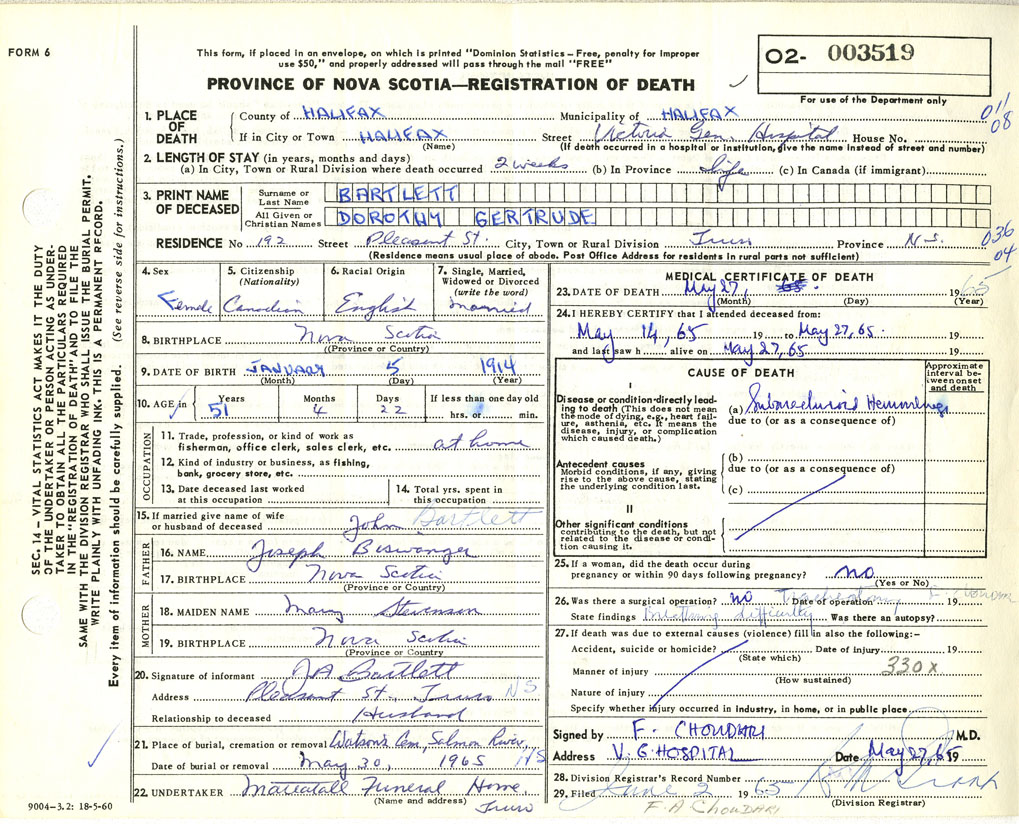 FORM 6
This form, if placed in an envelope, on which is printed "Dominion Statistics – Free, penalty for improper
use $50," and properly addressed will pass through the mail "FREE"
PROVINCE OF NOVA SCOTIA—REGISTRATION OF DEATH
O2- 003519
For use of the Department only
011
08
1. PLACE OF DEATH
County of HALIFAX Municipality of HALIFAX
If in City or Town HALIFAX Street Victoria Gen. Hospital House No.
(Name) (If death occurred in a hospital or institution, give the name instead of street and number)
2. LENGTH OF STAY (in years, months and days)
(a) In City, Town or Rural Division where death occurred 2 weeks (b) In Province Life (c) In Canada (if immigrant)
3. PRINT NAME OF DECEASED
Surname or Last Name BARTLETT
All Given or Christian Names DOROTHY GERTRUDE
RESIDENCE No 192 Street Pleasant St. City, Town or Rural Division Truro Province N.S.
036
04
(Residence means usual place of abode. Post Office Address for residents in rural parts not sufficient)
4. Sex Female
5. Citizenship (Nationality) Canadian
6. Racial Origin English
7. Single, Married, Widowed or Divorced (write the word) Married
8. BIRTHPLACE Nova Scotia
(Province or Country)
9. DATE OF BIRTH JANUARY 5 1914
(Month) (Day) (Year)
10. AGE in Years 51 Months 4 Days 22 If less than one day old hrs. or min.
OCCUPATION
11. Trade, profession, or kind of work as
fisherman, office clerk, sales clerk, etc. at home
12. Kind of industry or business, as fishing,
bank, grocery store, etc.
13. Date deceased last worked
at this occupation
14. Total yrs. spent in
this occupation
15. If married give name of wife
or husband of deceased John Bartlett
FATHER
16. NAME Joseph Biswanger
17. BIRTHPLACE Nova Scotia
(Province or Country)
MOTHER
18. MAIDEN NAME Mary Stevenson
19. BIRTHPLACE Nova Scotia
(Province or Country)
20. Signature of informant J A Bartlett
Address Pleasant St., Truro NS
Relationship to deceased Husband
21. Place of burial, cremation or removal Watson's Cem, Salmon River, NS
Date of burial or removal May 30, 1965
22. UNDERTAKER Mattatall Funeral Home
(Name and address) Truro
9004–3.2: 18-5-60
SEC. 14 – VITAL STATISTICS ACT MAKES IT THE DUTY
OF THE UNDERTAKER OR PERSON ACTING AS UNDER-
TAKER TO OBTAIN ALL THE PARTICULARS REQUIRED
IN THE "REGISTRATION OF DEATH" AND TO FILE THE
SAME WITH THE DIVISION REGISTRAR WHO SHALL ISSUE THE BURIAL PERMIT.
WRITE PLAINLY WITH UNFADING INK. THIS IS A PERMANENT RECORD.
Every item of information should be carefully supplied. (See reverse side for instructions.)
MEDICAL CERTIFICATE OF DEATH
23. DATE OF DEATH May 27, 65. 1965
(Month) (Day) (Year)
24. I HEREBY CERTIFY that I attended deceased from:
May 14, 65 19 to May 27, 65. 19
and last saw h alive on May 27, 65 19
CAUSE OF DEATH
Approximate interval between onset and death
I
Disease or condition directly lead-
ing to death (This does not mean
the mode of dying, e.g., heart fail-
ure, asthenia, etc. It means the
disease, injury, or complication
which caused death.)
(a) Subarachnoid Hemorrhage
due to (or as a consequence of)
Antecedent causes
Morbid conditions, if any, giving
rise to the above cause, stating
the underlying condition last.
(b)
due to (or as a consequence of)
(c)
II
Other significant conditions
contributing to the death, but not
related to the disease or condi-
tion causing it.
25. If a woman, did the death occur during
pregnancy or within 90 days following pregnancy? no
(Yes or No)
26. Was there a surgical operation? no Tracheotomy Date of operation 19
F. Choudhari
State findings Breathing difficulty Was there an autopsy?
27. If death was due to external causes (violence) fill in also the following:–
Accident, suicide or homicide? Date of injury 19
(State which)
Manner of injury 330 x
(How sustained)
Nature of injury
Specify whether injury occurred in industry, in home, or in public place
Signed by F. CHOUDHARI M.D.
Address V. G HOSPITAL Date May 27, 65 19
28. Division Registrar's Record Number
29. Filed June 2 1965
(Division Registrar)
F. A CHOUDHARI